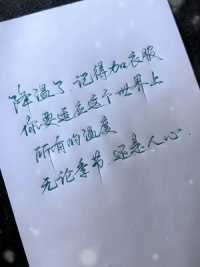 降温了 记得加衣服
你要适应这个世界上
所有的温度
无论季节 还是人心.